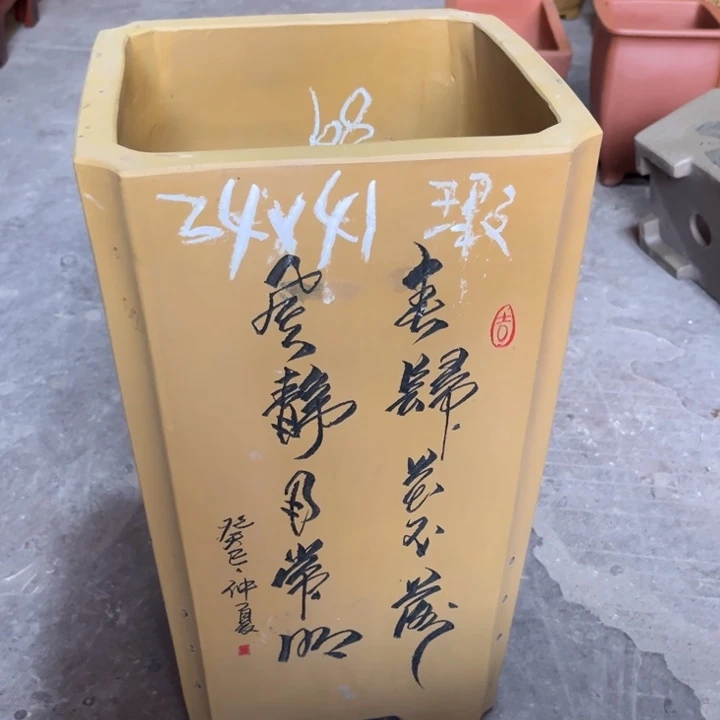 68
24x41 瑕
吉
春歸花不落
風靜月常明
癸巳仲夏